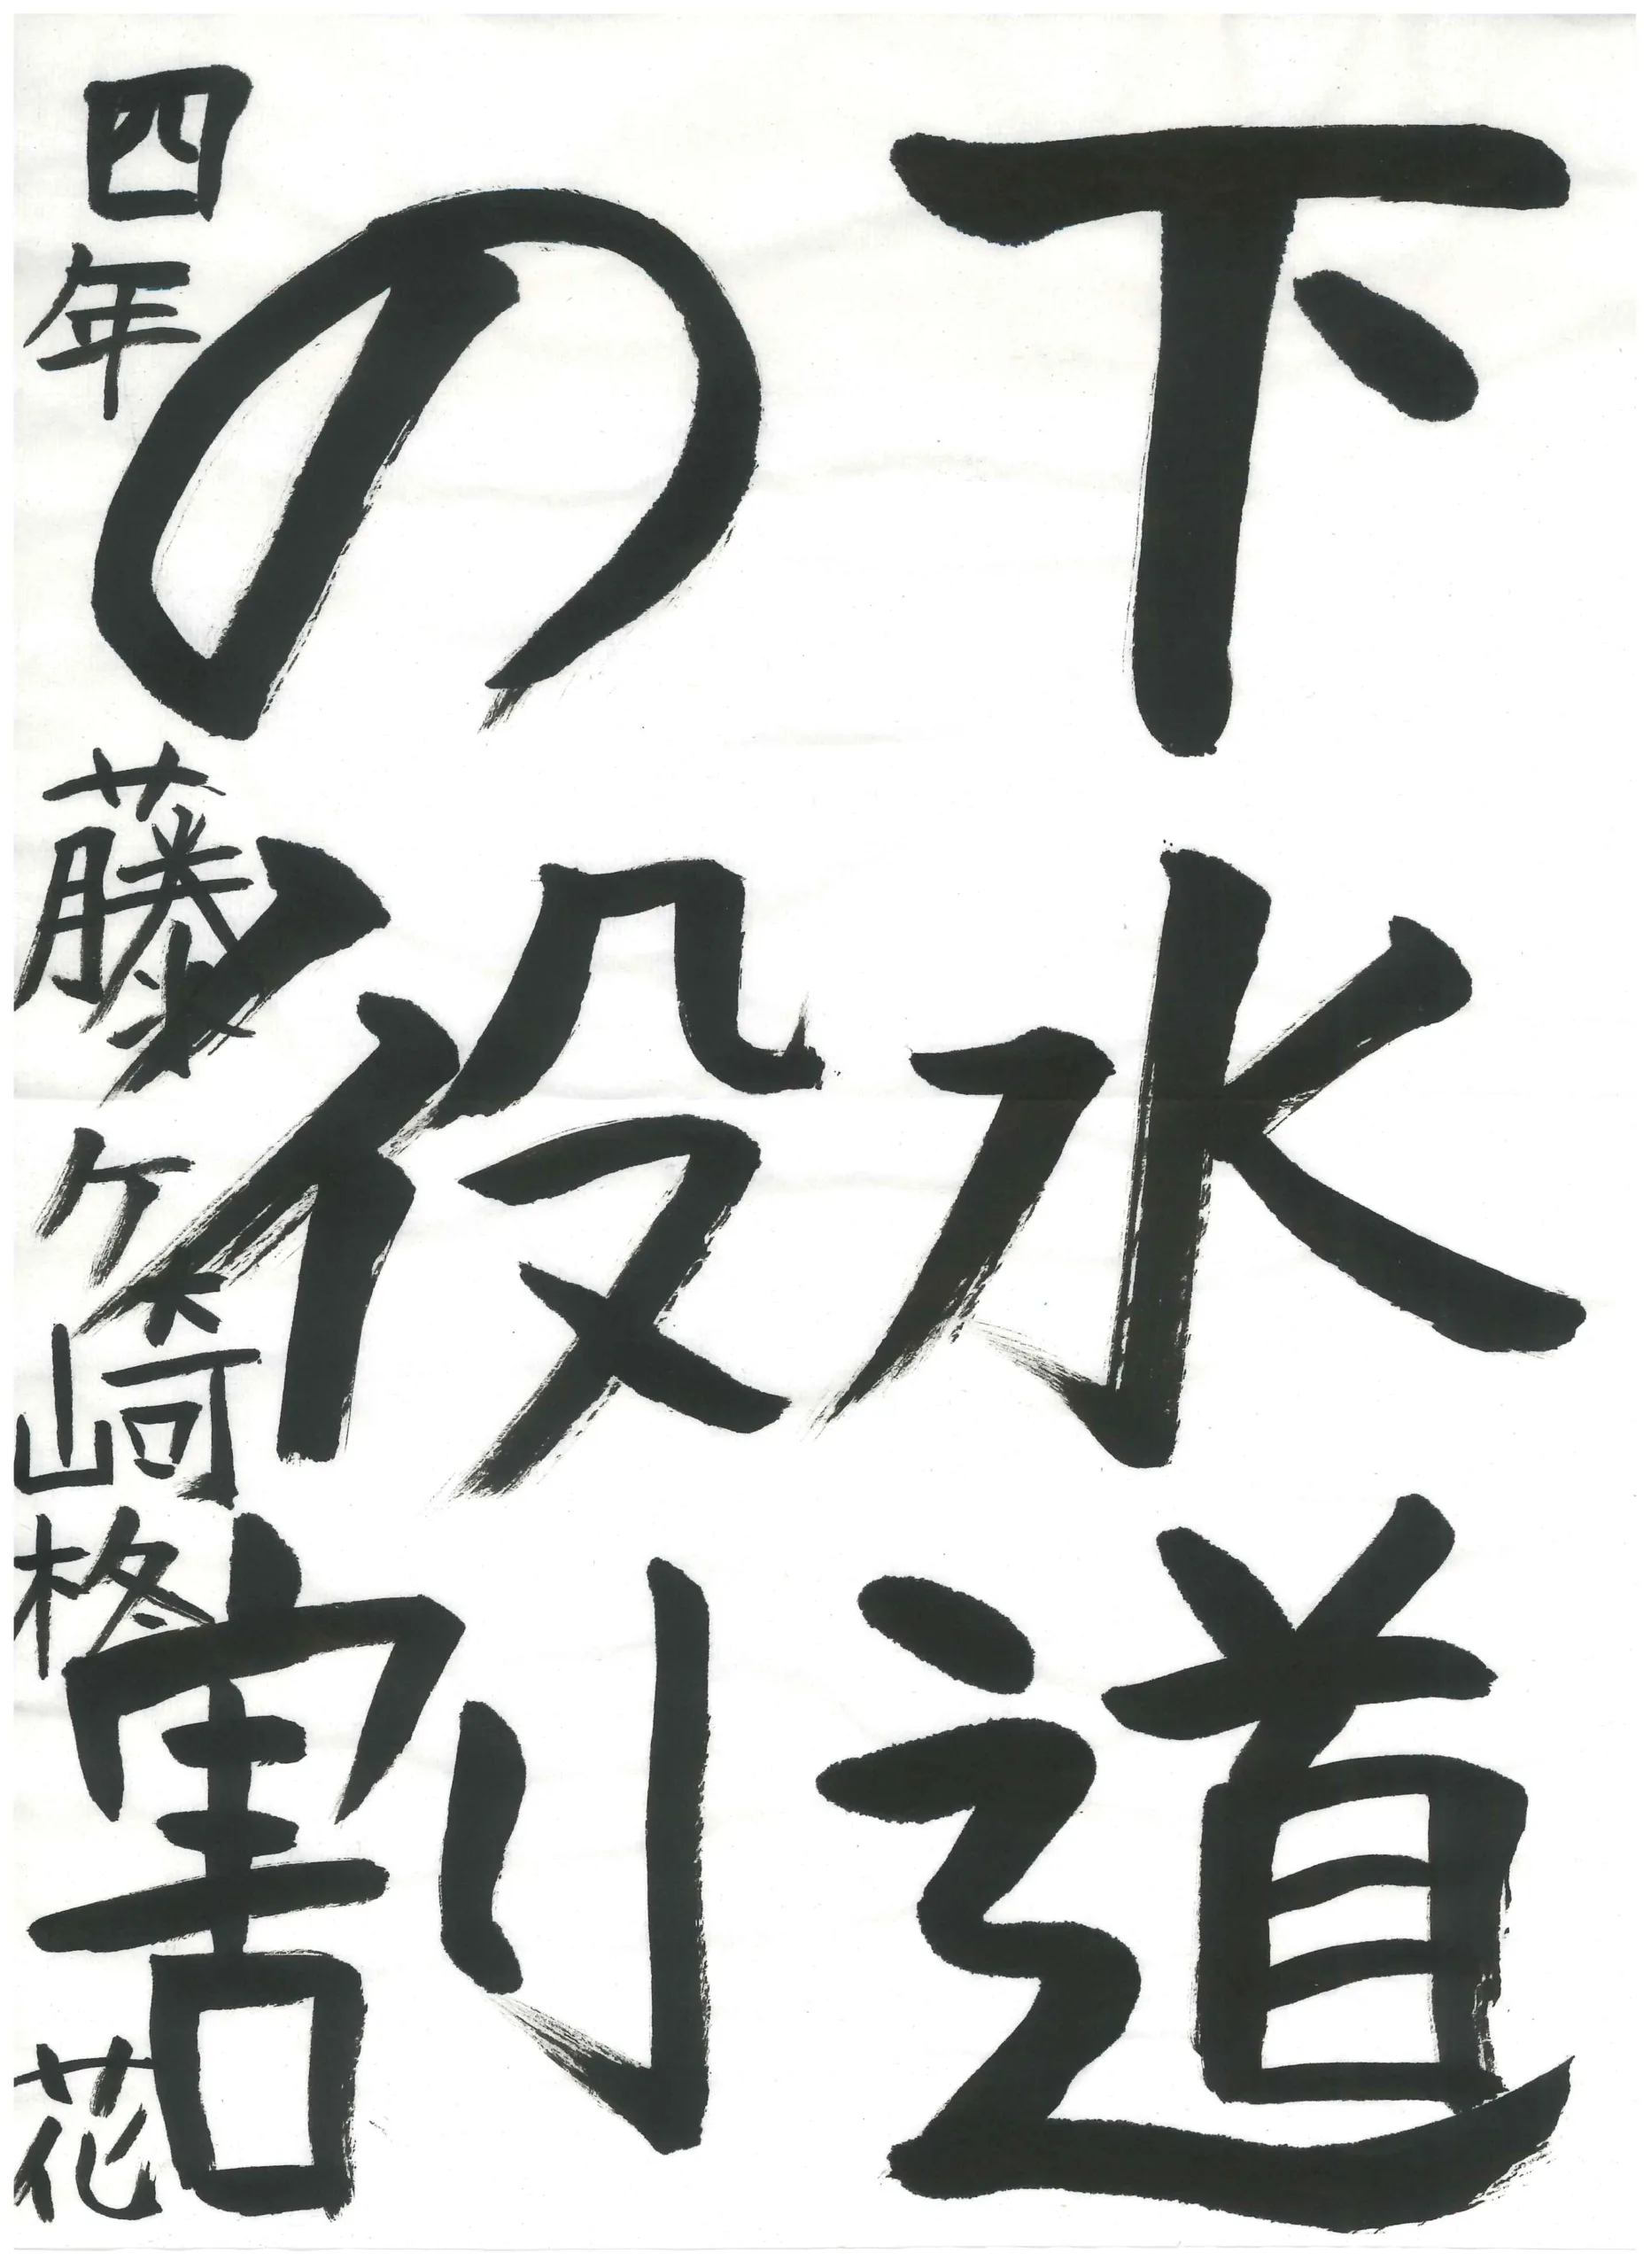 下水道
の役割
四年 藤ヶ崎柊花